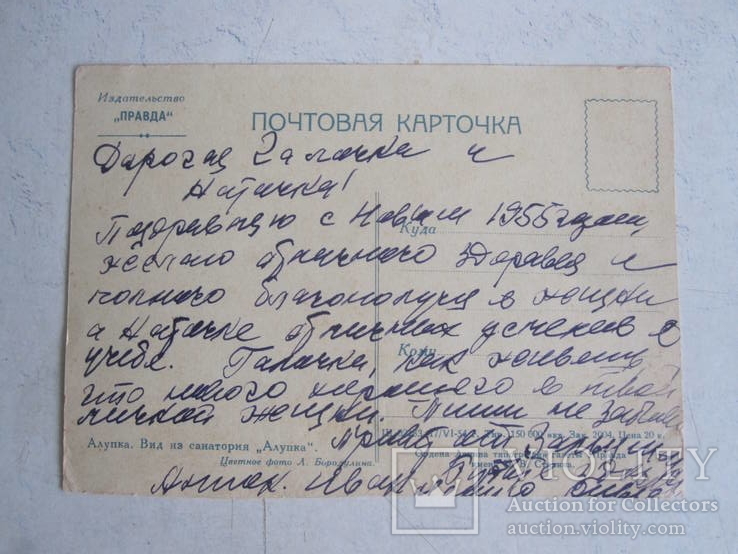 Издательство
„ПРАВДА“
ПОЧТОВАЯ КАРТОЧКА
Дарогая Галочка и
Наточка!
Поздравляю с Новым 1955 годом,
Куда
желаю отличного здоровья и
полного благополучия в жизни
а Наточке отличных успехов в
Кому
учебе. Галочка, как живешь,
что нового хорошего в твоей
личной жизни. Пиши не забывай
Алупка. Вид из санатория „Алупка“.
150 000 экз. Зак. 2004. Цена 20 к.
Цветное фото Л. Бородулина.
Ордена Ленина типография газеты „Правда“
Привет
VIOLITY
Auction for Collectors
auction.violity.com